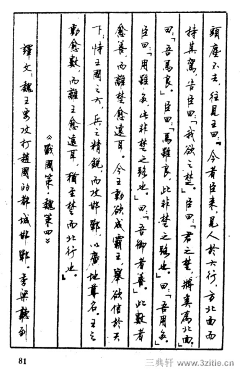 頭塵不去，往見王曰：“今者臣來，見人於大行，方北面而
持其駕，告臣曰：‘我欲之楚。’臣曰：‘君之楚，將奚爲北面？’
曰：‘吾馬良。’臣曰：‘馬雖良，此非楚之路也。’曰：‘吾用多。’
臣曰：‘用雖多，此非楚之路也。’曰：‘吾御者善。’此數者
愈善，而離楚愈遠耳。今王動欲成霸王，舉欲信於天
下。恃王國之大，兵之精銳，而攻邯鄲，以廣地尊名。王之
動愈數，而離王愈遠耳。猶至楚而北行也。”
《戰國策·魏策四》
譯文：魏王要攻打趙國的都城邯鄲，季梁聽到
81
三典轩 www.3zitie.cn